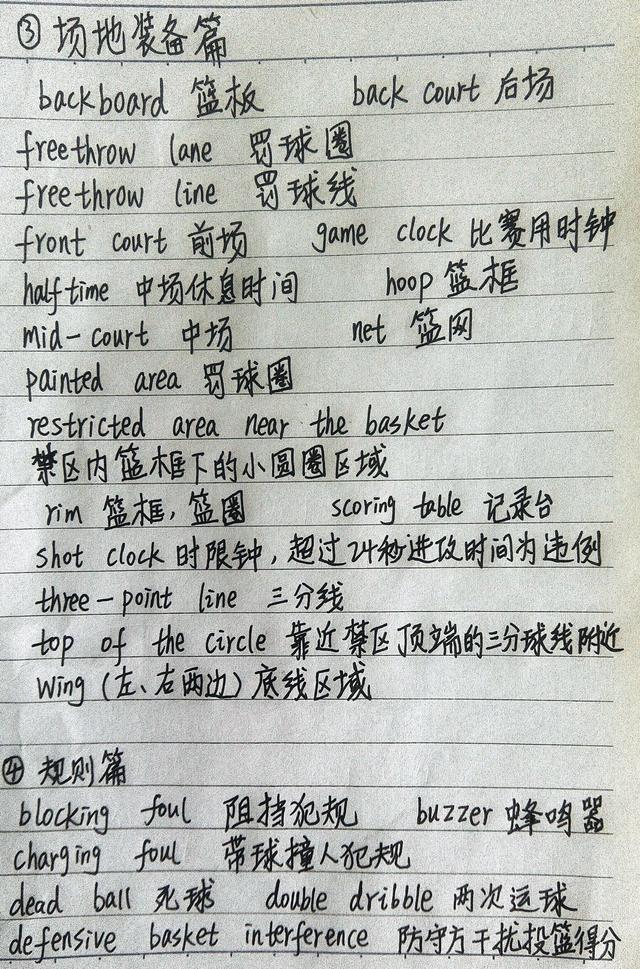 ③ 场地装备篇
backboard 篮板 back court 后场
freethrow lane 罚球圈
freethrow line 罚球线
front court 前场 game clock 比赛用时钟
halftime 中场休息时间 hoop 篮框
mid-court 中场 net 篮网
painted area 罚球圈
restricted area near the basket
禁区内篮框下的小圆圈区域
rim 篮框,篮圈 scoring table 记录台
shot clock 时限钟,超过24秒进攻时间为违例
three-point line 三分线
top of the circle 靠近禁区顶端的三分球线附近
wing (左、右两边) 底线区域
④ 规则篇
blocking foul 阻挡犯规 buzzer 蜂鸣器
charging foul 带球撞人犯规
dead ball 死球 double dribble 两次运球
defensive basket interference 防守方干扰投篮得分